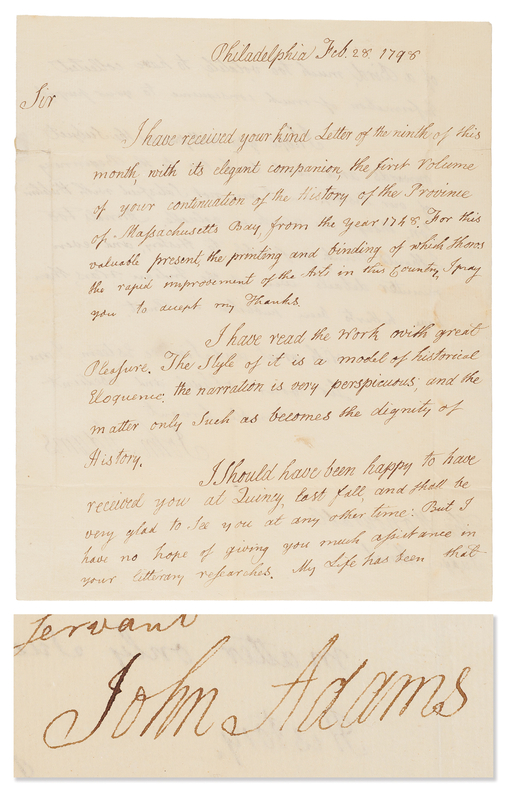 Philadelphia Feb. 28. 1798
Sir
I have received your kind Letter of the ninth of this
month, with its elegant companion, the first Volume
of your continuation of the History of the Province
of Massachusetts Bay, from the Year 1748. For this
valuable present, the printing and binding of which shows
the rapid improvement of the Arts in this Country, I pray
you to accept my Thanks.
I have read the Work with great
Pleasure. The Style of it is a model of historical
Eloquence, the narration is very perspicuous, and the
matter only Such as becomes the dignity of
History.
I Should have been happy to have
received you at Quincy, last fall and shall be
very glad to See you at any other time: But I
have no hope of giving you much assistance in
your litterary researches. My Life has been that
Servant
John Adams